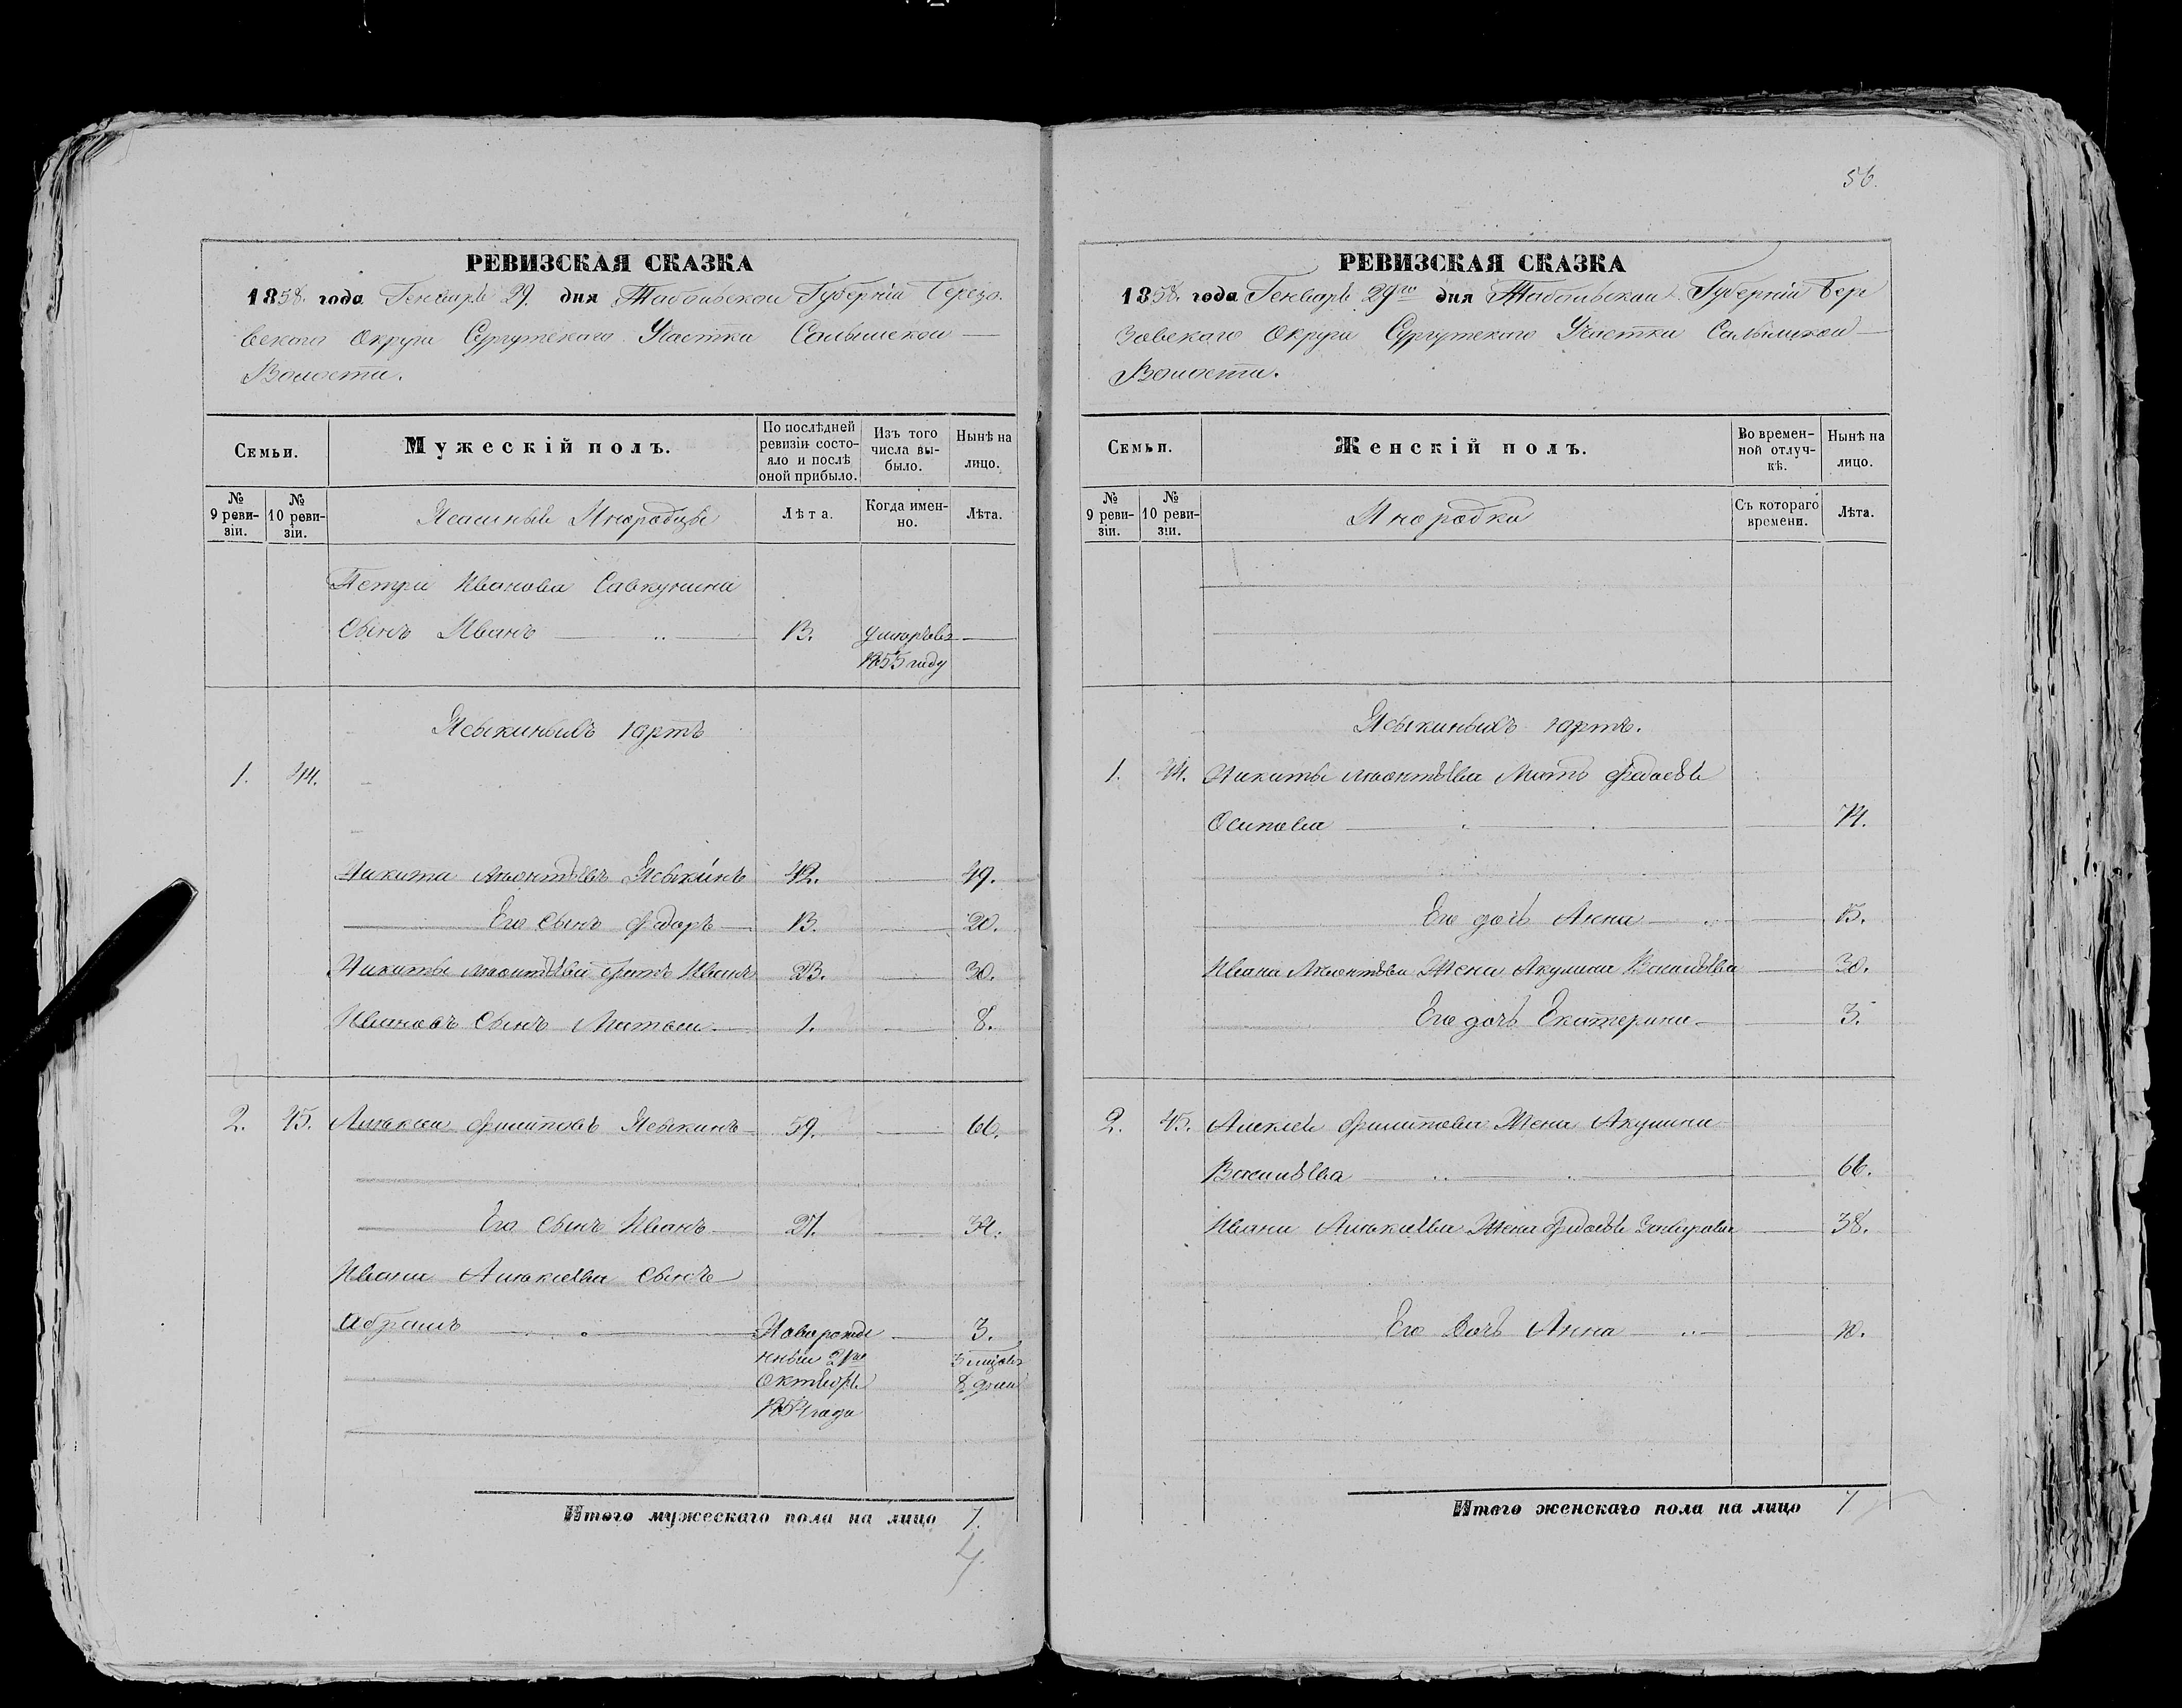 РЕВИЗСКАЯ СКАЗКА
1858. года Генваря 29. дня Тобольской Губерніи Березо-
вскаго Округа Сургутскаго Участка Салымской
Волости.
Семьи.
Мужескій полъ.
По послѣдней
ревизіи состо-
яло и послѣ
оной прибыло.
Изъ того
числа вы-
было.
Нынѣ на
лицо.
№
9 реви-
зіи.
№
10 реви-
зіи.
Ясашные Инородцы
Лѣта.
Когда имен-
но.
Лѣта.
Петра Иванова Савкунина
Сынъ Иванъ 13. умеръ въ
1855 году
Ясыкиныхъ юртъ
1. 44.
Никита Ясыкинъ 42. 49.
Его Сынъ Федоръ 13. 20.
Никиты братъ Иванъ 23. 30.
Ивановъ Сынъ 1. 8.
2. 45. Алексѣй Филиповъ Ясыкинъ 59. 66.
Его Сынъ Иванъ 27. 34.
Ивана Алексѣева Сынъ
Абрамъ Новорожде 3.
нный 21го 3 мѣсяц
Октября 8 дней
1854 года
Итого мужескаго пола на лицо 7.
4
56.
РЕВИЗСКАЯ СКАЗКА
1858. года Генваря 29го дня Тобольской Губерніи Бере
зовскаго Округа Сургутскаго Участка Салымской
Волости.
Семьи.
Женскій полъ.
Во времен-
ной отлуч-
кѣ.
Нынѣ на
лицо.
№
9 реви-
зіи.
№
10 реви-
зіи.
Инородки
Съ котораго
времени.
Лѣта.
Ясыкиныхъ юртъ.
1. 44. Никиты Мать Федосья
Осипова 74.
Его дочь Анна 15.
Ивана Жена Акулина Васильева 30.
Его дочь Екатерина 3.
2. 45. Алексѣя Филипова Жена Акулина
Васильева 66.
Ивана Алексѣева Жена Федосья 38.
Его Дочь Анна 10.
Итого женскаго пола на лицо 7